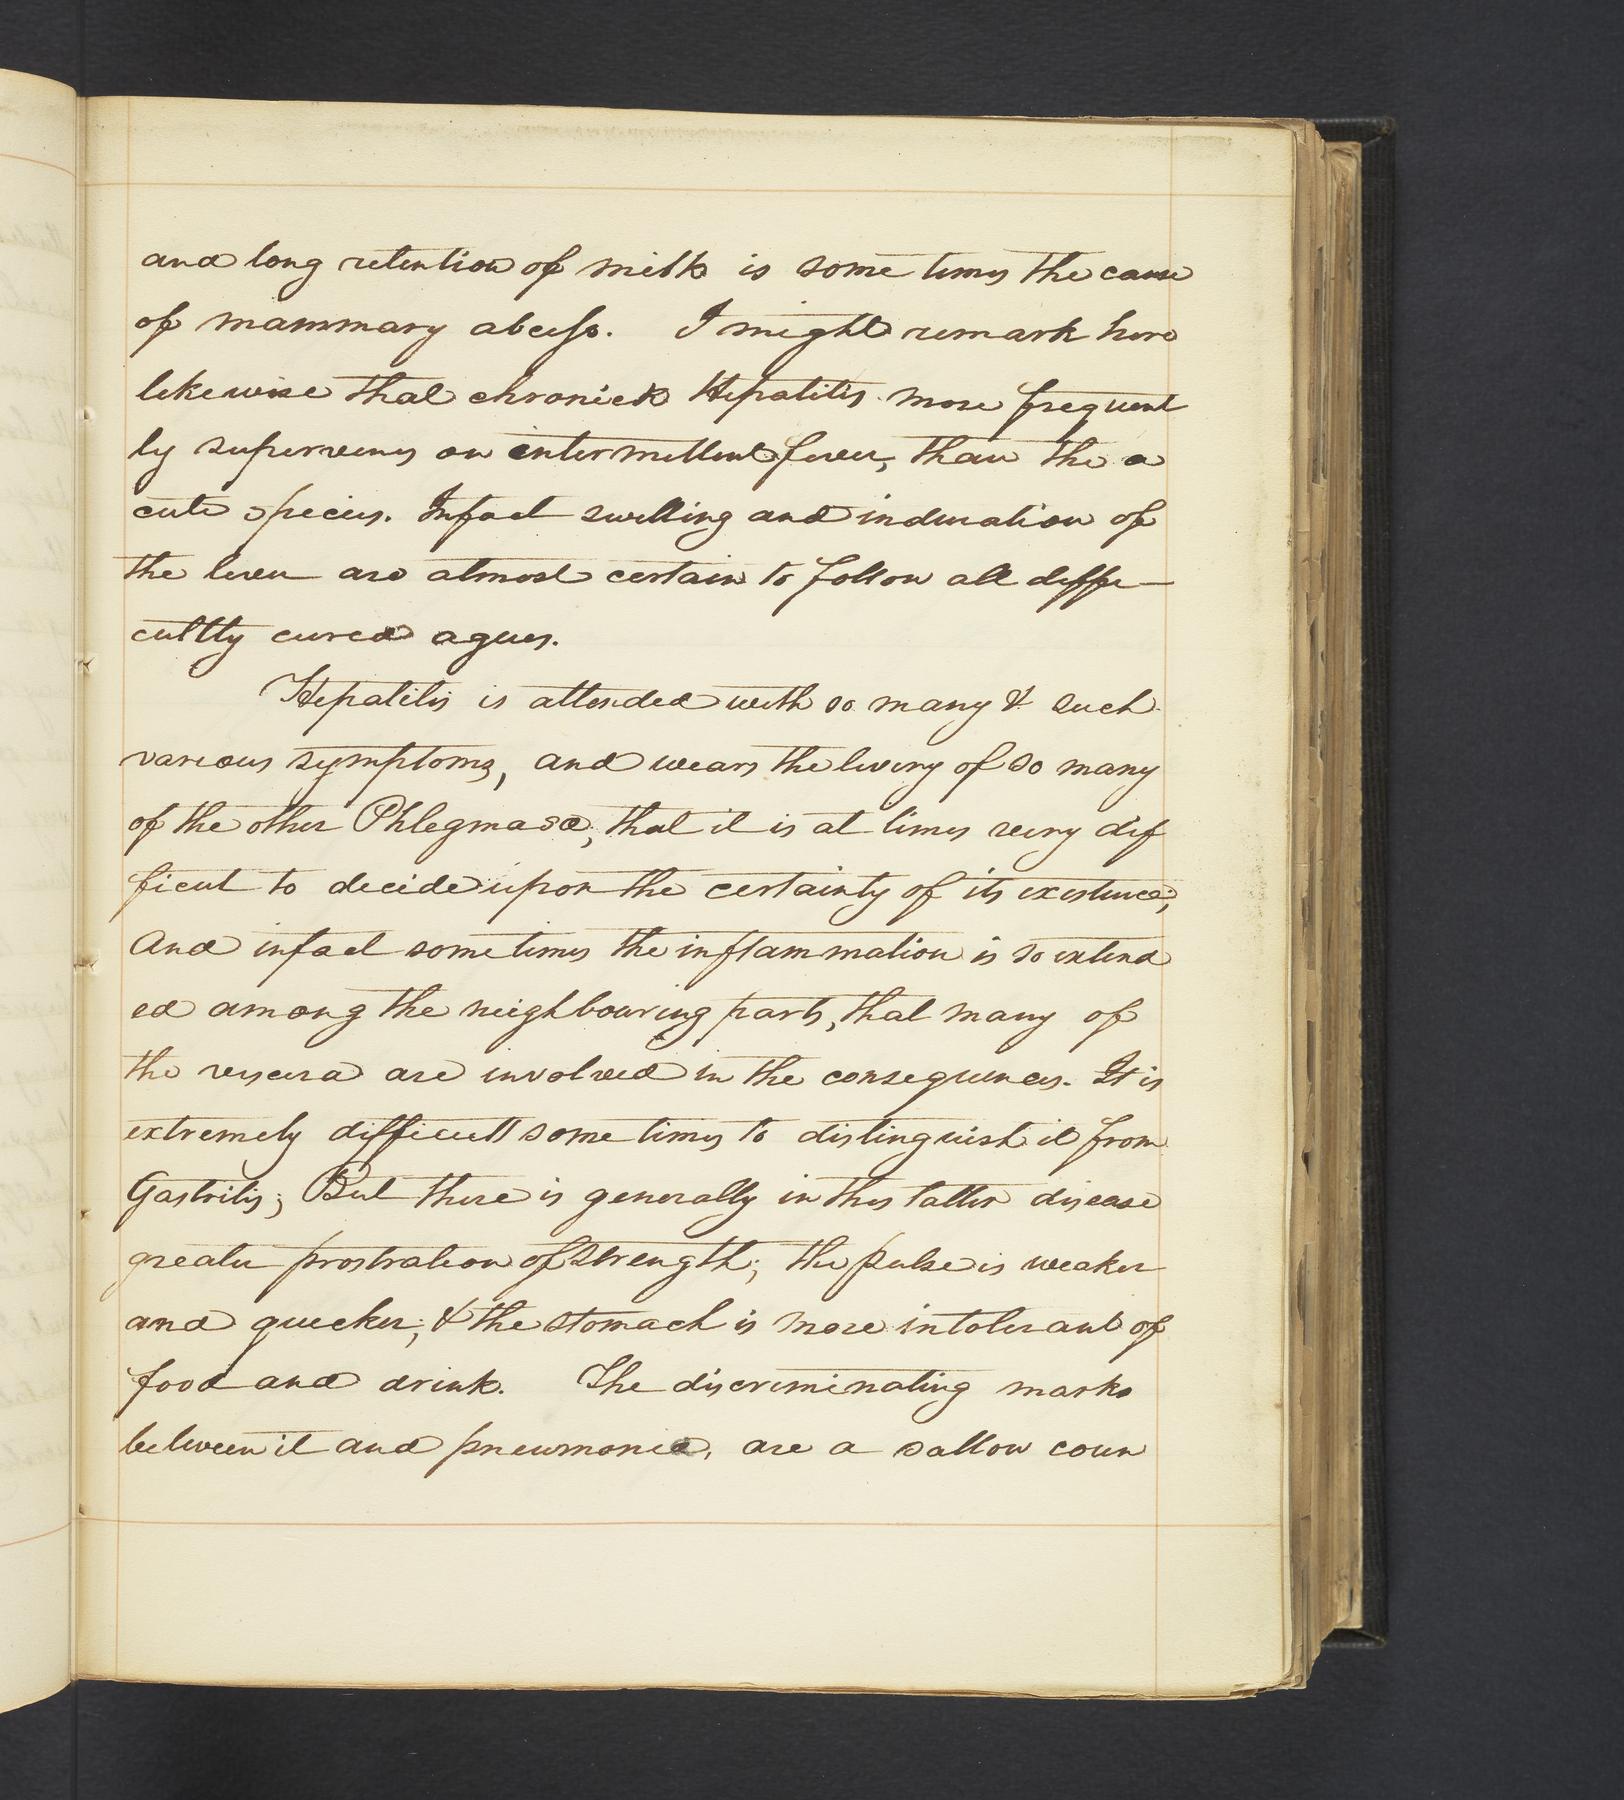 and long retention of milk is some times the cause
of mammary abcess. I might remark here
likewise that chronick Hepatitis more frequent
ly supervenes on intermittent fever, than the a
cute species. Infact swelling and induration of
the liver are almost certain to follow all diffi-
cultly cured agues.
Hepatitis is attended with so many & such
various symptoms, and wears the livery of so many
of the other Phlegmasæ, that it is at times very dif
ficult to decide upon the certainty of its existence;
And infact sometimes the inflammation is so extend
ed among the neighbouring parts, that many of
the viscera are involved in the consequences. It is
extremely difficult some times to distinguish it from
Gastritis; But there is generally in this latter disease
greater prostration of strength; the pulse is weaker
and quicker; & the stomach is more intolerant of
food and drink. The discriminating marks
between it and pneumonia, are a sallow coun